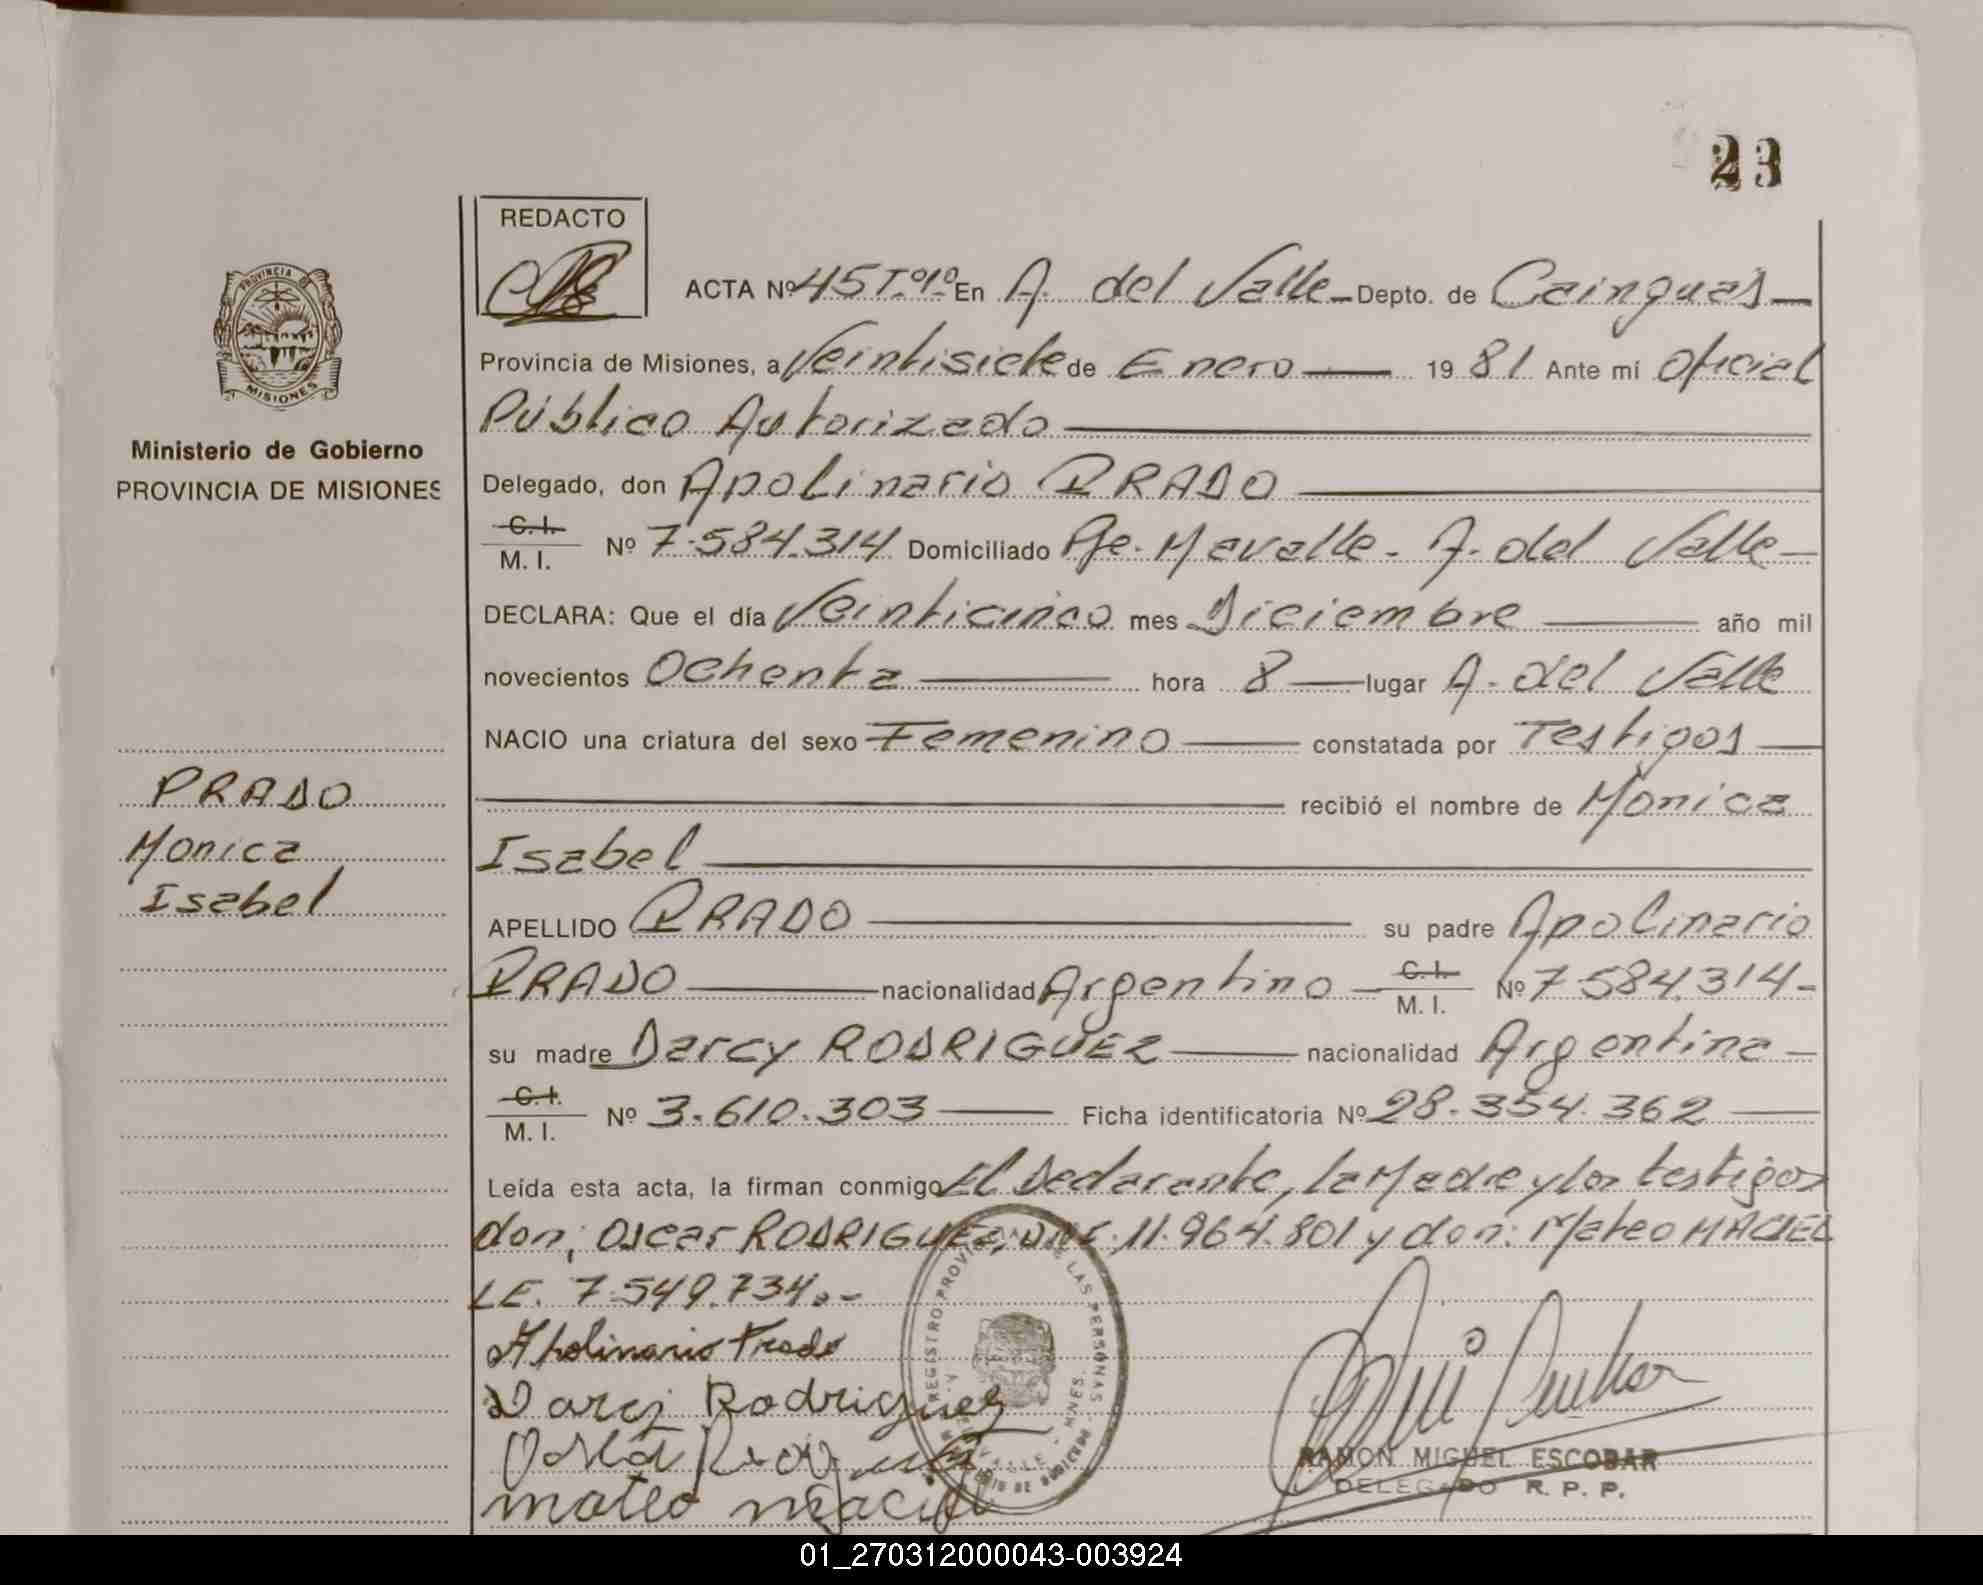 23
REDACTO
ACTA Nº 45 Tº 1º En A. del Valle Depto. de Cainguas
Provincia de Misiones, a Veintisiete de Enero 19 81 Ante mí Oficial
Público Autorizado
Delegado, don Apolinario PRADO
C.I. M.I. Nº 7.584.314 Domiciliado Pje. Mavalle - A. del Valle
DECLARA: Que el día Veinticinco mes Diciembre año mil
novecientos Ochenta hora 8 lugar A. del Valle
NACIO una criatura del sexo Femenino constatada por Testigos
recibió el nombre de Monica
Isabel
APELLIDO PRADO su padre Apolinario
PRADO nacionalidad Argentino C.I. M.I. Nº 7.584.314-
su madre Darcy RODRIGUEZ nacionalidad Argentina
C.I. M.I. Nº 3.610.303 Ficha identificatoria Nº 28.354.362
Leída esta acta, la firman conmigo El Declarante, la Madre y los testigos
don; Oscar RODRIGUEZ, DNI. 11.964.801 y don: Mateo MACIEL
LE. 7.549.734.-
Apolinario Prado
Darcj Rodriguez
mateo maciel
RAMON MIGUEL ESCOBAR
DELEGADO R. P. P.
PROVINCIA
MISIONES
Ministerio de Gobierno
PROVINCIA DE MISIONES
PRADO
Monica
Isabel
REGISTRO PROVINCIAL DE LAS PERSONAS
01_270312000043-003924